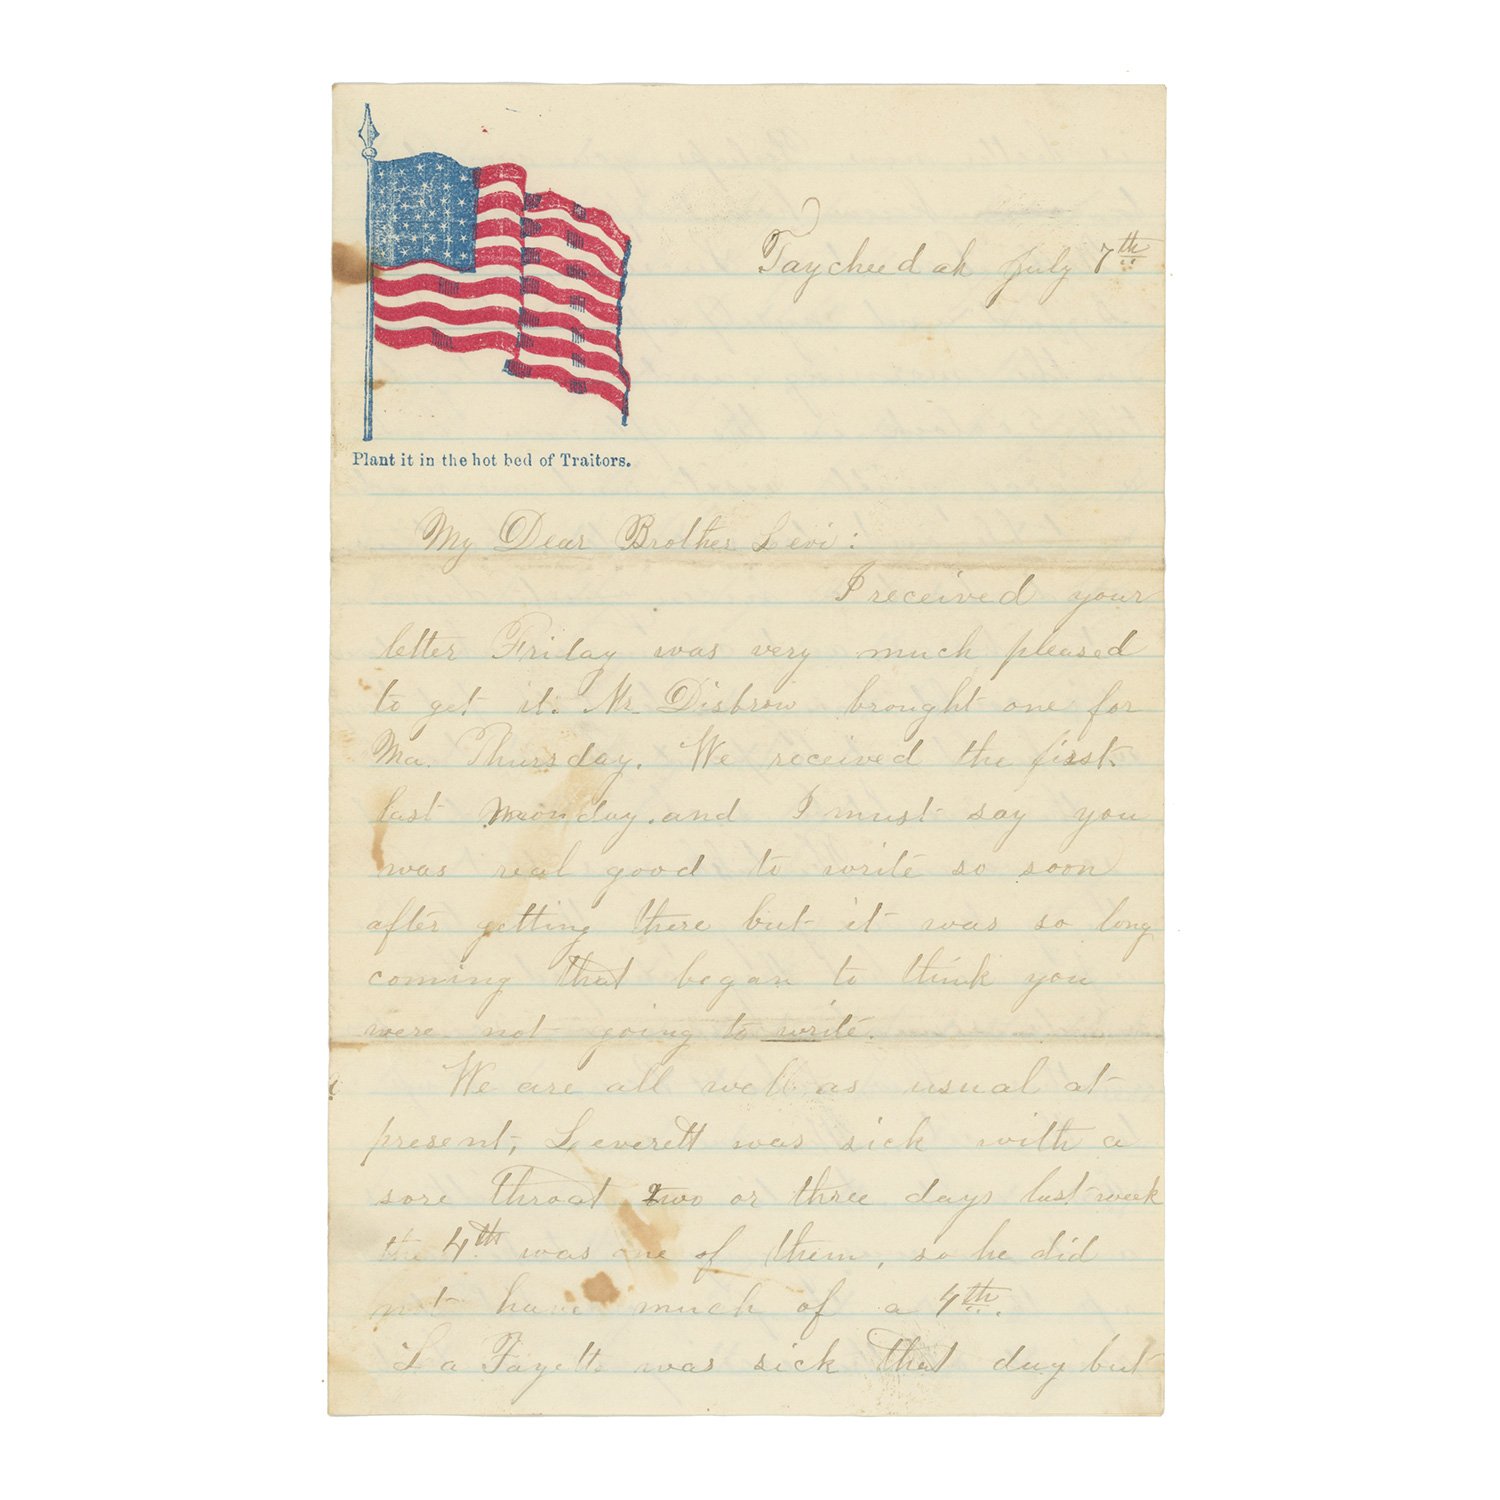 Taycheedah July 7th
Plant it in the hot bed of Traitors.
My Dear Brother Levi:
I received your
letter Friday was very much pleased
to get it. Mr Disbrow brought one for
Ma. Thursday. We received the first
last Monday. and I must say you
was real good to write so soon
after getting there but it was so long
coming that began to think you
were not going to write.
We are all well as usual at
present, Leverett was sick with a
sore throat two or three days last week
the 4th was one of them, so he did
not have much of a 4th.
La Fayette was sick that day but